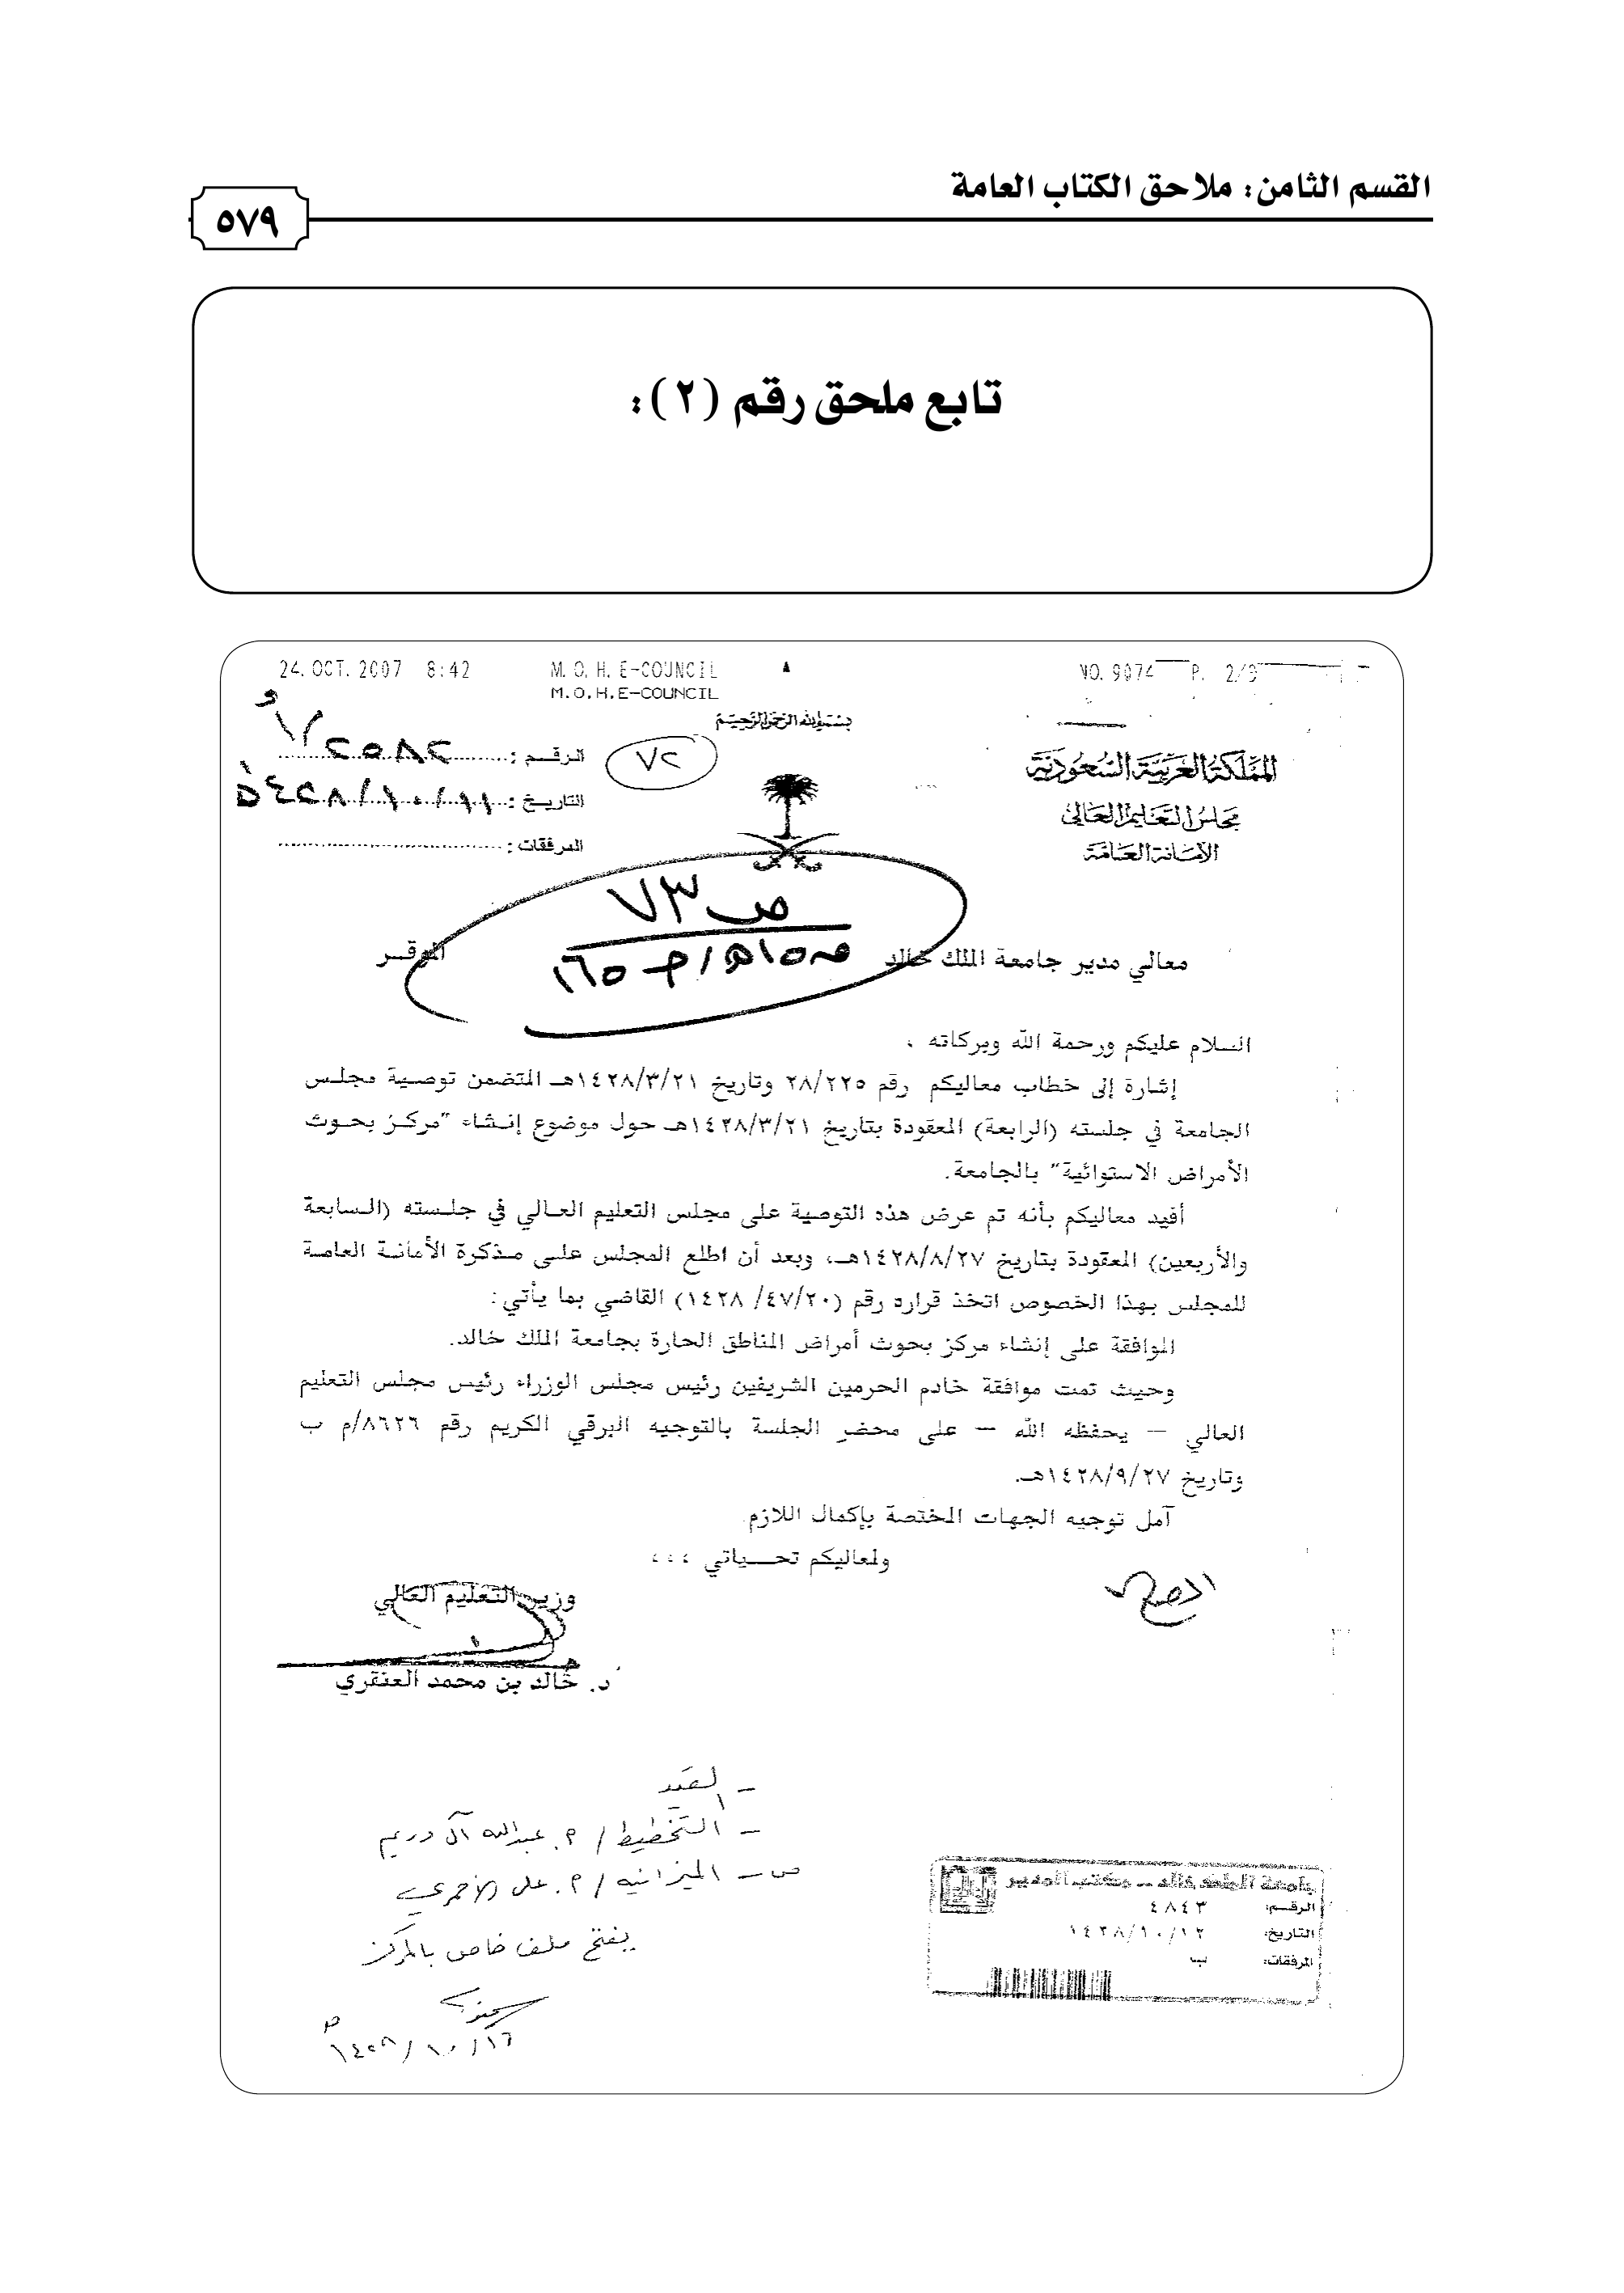 القسم الثامن: ملاحق الكتاب العامة
٥٧٩
تابع ملحق رقم (٢):
24. OCT. 2007 8:42 M.O.H.E-COUNCIL NO. 9074 P. 2/3
M.O.H.E-COUNCIL
بسم الله الرحمن الرحيم
المملكة العربية السعودية
مجلس التعليم العالي
الأمانة العامة
الرقم : ٢٥٨٢/١/و
التاريخ : ١٤٢٨/١٠/١١هـ
المرفقات :
٧٢
ص ٧٣
معالي مدير جامعة الملك خالد الموقر
السلام عليكم ورحمة الله وبركاته ،
إشارة إلى خطاب معاليكم رقم ٢٨/٢٢٥ وتاريخ ١٤٢٨/٣/٢١هـ المتضمن توصية مجلس
الجامعة في جلسته (الرابعة) المعقودة بتاريخ ١٤٢٨/٣/٢١هـ حول موضوع إنشاء "مركز بحوث
الأمراض الاستوائية" بالجامعة.
أفيد معاليكم بأنه تم عرض هذه التوصية على مجلس التعليم العالي في جلسته (السابعة
والأربعين) المعقودة بتاريخ ١٤٢٨/٨/٢٧هـ، وبعد أن اطلع المجلس على مذكرة الأمانة العامة
للمجلس بهذا الخصوص اتخذ قراره رقم (١٤٢٨ /٤٧/٢٠) القاضي بما يأتي:
الموافقة على إنشاء مركز بحوث أمراض المناطق الحارة بجامعة الملك خالد.
وحيث تمت موافقة خادم الحرمين الشريفين رئيس مجلس الوزراء رئيس مجلس التعليم
العالي – يحفظه الله – على محضر الجلسة بالتوجيه البرقي الكريم رقم ٨٦٢٦/م ب
وتاريخ ١٤٢٨/٩/٢٧هـ.
آمل توجيه الجهات المختصة بإكمال اللازم
ولمعاليكم تحياتي ،،،
وزير التعليم العالي
د. خالد بن محمد العنقري
– التخطيط / م. عبدالله آل دريم
– الميزانيه / م. علي الأحمري
يفتح ملف خاص بالمركز
جامعة الملك خالد – مكتب المدير
الرقم: ٤٨٤٣
التاريخ: ١٤٢٨/١٠/١٢
المرفقات: ب